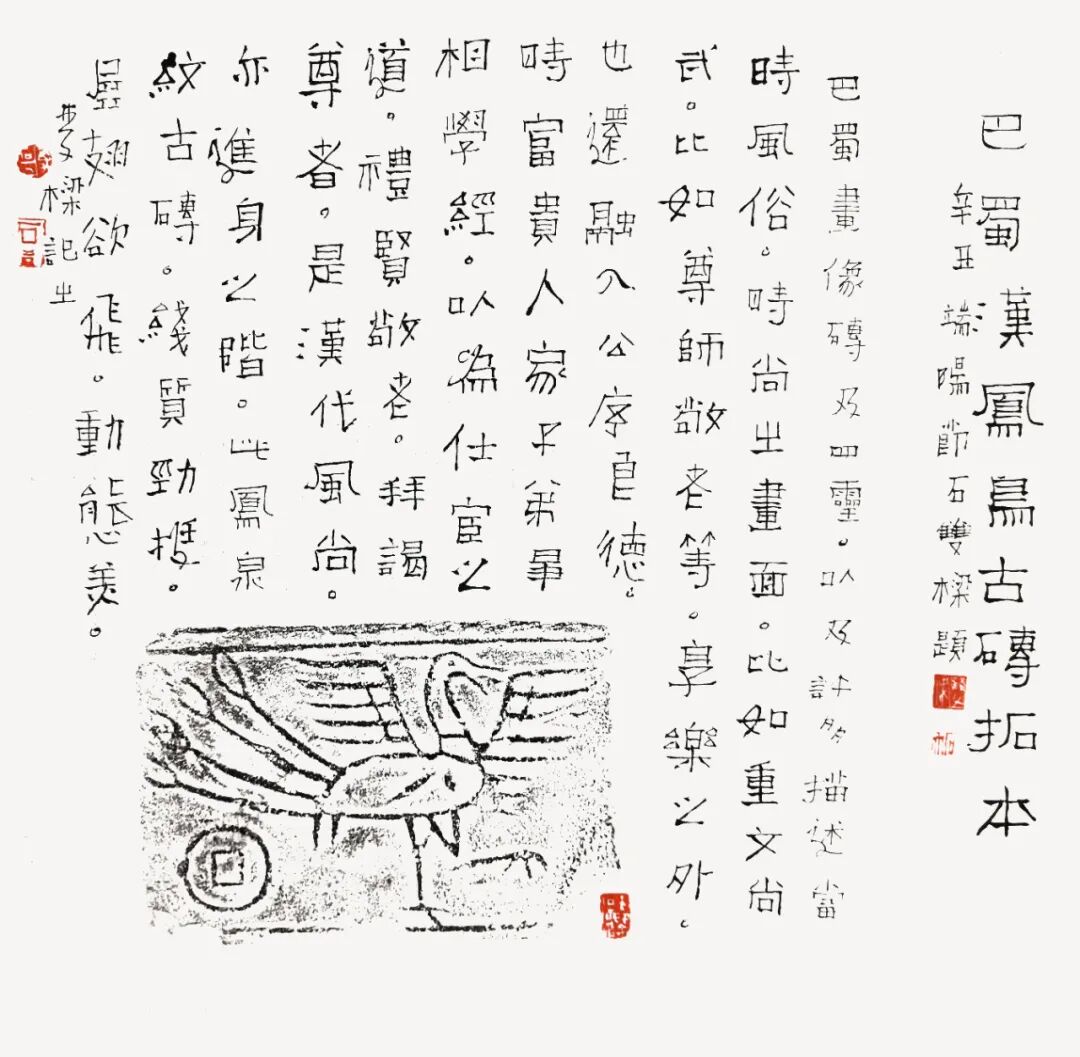 巴蜀漢鳳鳥古磚拓本
辛丑端陽節石雙樑題
巴蜀畫像磚及四靈。以及許多描述當
時風俗。時尚之畫面。比如重文尚
武。比如尊師敬老等。享樂之外。
也還融入公序良德。
時富貴人家子弟爭
相學經。以為仕宦之
道。禮賢敬老。拜謁
尊者。是漢代風尚。
亦進身之階。此鳳鳥
紋古磚。綫質勁挺。
展翅欲飛。動態美。
雙樑記之